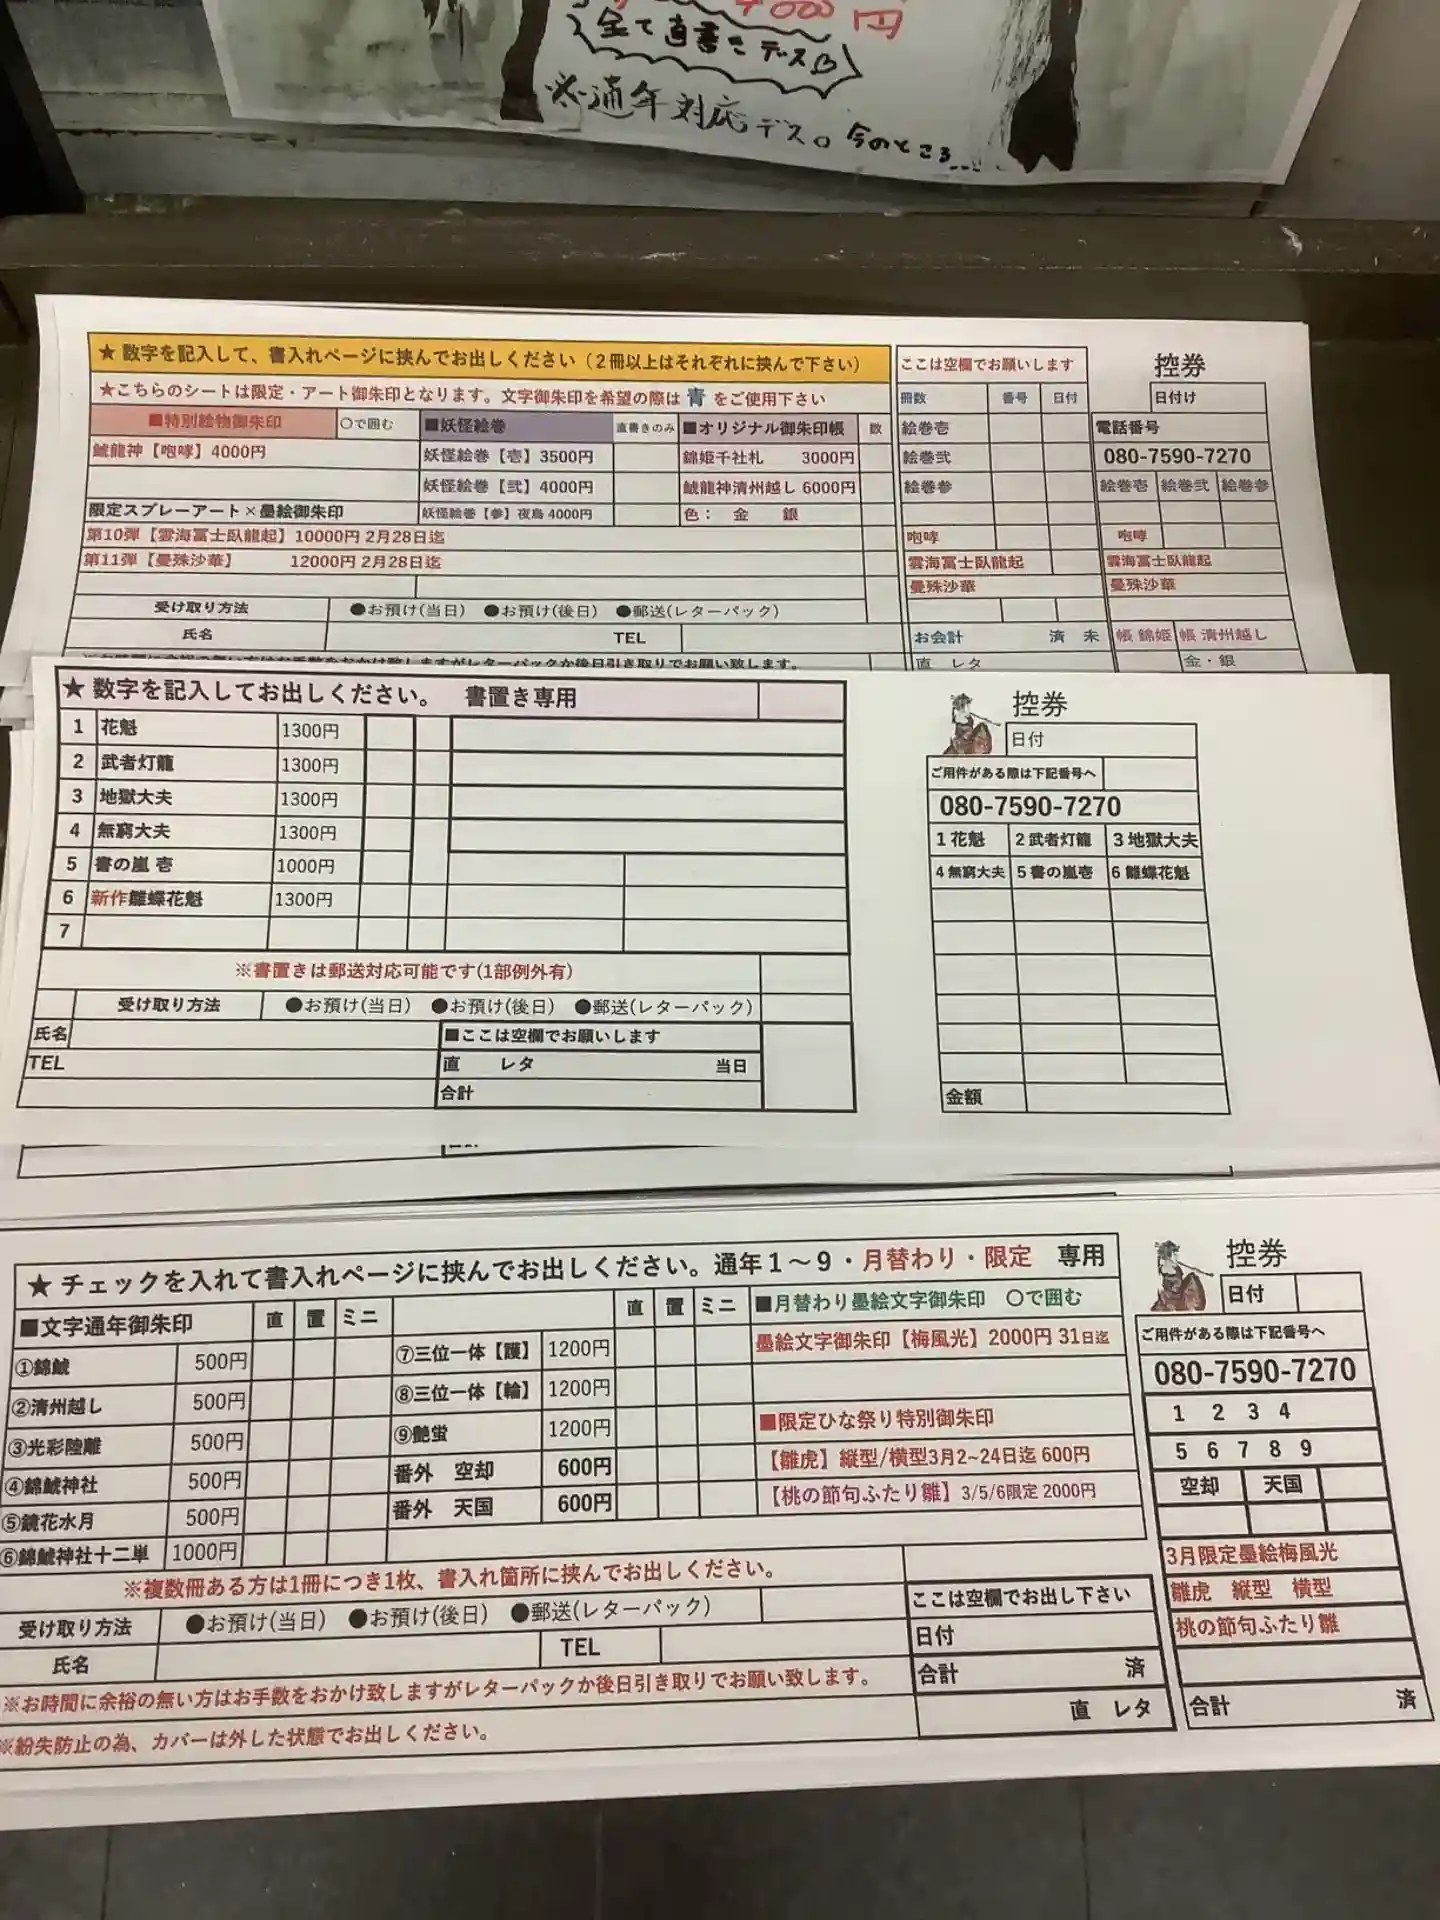 4000円
全て直書きデス♡
※通年対応デス。今のところ....
★ 数字を記入して、書入れページに挟んでお出しください（2冊以上はそれぞれに挟んで下さい）
★こちらのシートは限定・アート御朱印となります。文字御朱印を希望の際は 青 をご使用下さい
■特別絵物御朱印 ○で囲む ■妖怪絵巻 直書きのみ ■オリジナル御朱印帳 数
鯱龍神【咆哮】4000円 妖怪絵巻【壱】3500円 錦姫千社札 3000円
妖怪絵巻【弐】4000円 鯱龍神清州越し 6000円
限定スプレーアート×墨絵御朱印 妖怪絵巻【参】夜鳥 4000円 色： 金 銀
第10弾【雲海冨士臥龍起】10000円 2月28日迄
第11弾【曼殊沙華】 12000円 2月28日迄
受け取り方法 ●お預け(当日) ●お預け(後日) ●郵送(レターパック)
氏名 TEL
※お時間に余裕の無い方はお手数をおかけ致しますがレターパックか後日引き取りでお願い致します。
ここは空欄でお願いします
冊数 番号 日付
絵巻壱
絵巻弐
絵巻参
咆哮
雲海冨士臥龍起
曼殊沙華
お会計 済 未
直 レタ
控券
日付け
電話番号
080-7590-7270
絵巻壱 絵巻弐 絵巻参
咆哮
雲海冨士臥龍起
曼殊沙華
帳 錦姫 帳 清州越し
金・銀
★ 数字を記入してお出しください。 書置き専用
1 花魁 1300円
2 武者灯籠 1300円
3 地獄大夫 1300円
4 無窮大夫 1300円
5 書の嵐 壱 1000円
6 新作雛蝶花魁 1300円
7
※書置きは郵送対応可能です(1部例外有)
受け取り方法 ●お預け(当日) ●お預け(後日) ●郵送(レターパック)
氏名 ■ここは空欄でお願いします
TEL 直 レタ 当日
合計
控券
日付
ご用件がある際は下記番号へ
080-7590-7270
1 花魁 2 武者灯籠 3 地獄大夫
4 無窮大夫 5 書の嵐壱 6 雛蝶花魁
金額
★ チェックを入れて書入れページに挟んでお出しください。通年１～９・月替わり・限定 専用
■文字通年御朱印 直 置 ミニ 直 置 ミニ ■月替わり墨絵文字御朱印 ○で囲む
①錦鯱 500円 ⑦三位一体【護】 1200円 墨絵文字御朱印【梅風光】2000円 31日迄
②清州越し 500円 ⑧三位一体【輪】 1200円
③光彩陸離 500円 ⑨艶蛍 1200円 ■限定ひな祭り特別御朱印
④錦鯱神社 500円 番外 空却 600円 【雛虎】縦型/横型3月2~24日迄 600円
⑤鏡花水月 500円 番外 天国 600円 【桃の節句ふたり雛】3/5/6限定 2000円
⑥錦鯱神社十二単 1000円
※複数冊ある方は1冊につき1枚、書入れ箇所に挟んでお出しください。
受け取り方法 ●お預け(当日) ●お預け(後日) ●郵送(レターパック)
氏名 TEL
※お時間に余裕の無い方はお手数をおかけ致しますがレターパックか後日引き取りでお願い致します。
※紛失防止の為、カバーは外した状態でお出しください。
ここは空欄でお出し下さい
日付
合計 済
直 レタ
控券
日付
ご用件がある際は下記番号へ
080-7590-7270
1 2 3 4
5 6 7 8 9
空却 天国
3月限定墨絵梅風光
雛虎 縦型 横型
桃の節句ふたり雛
合計 済